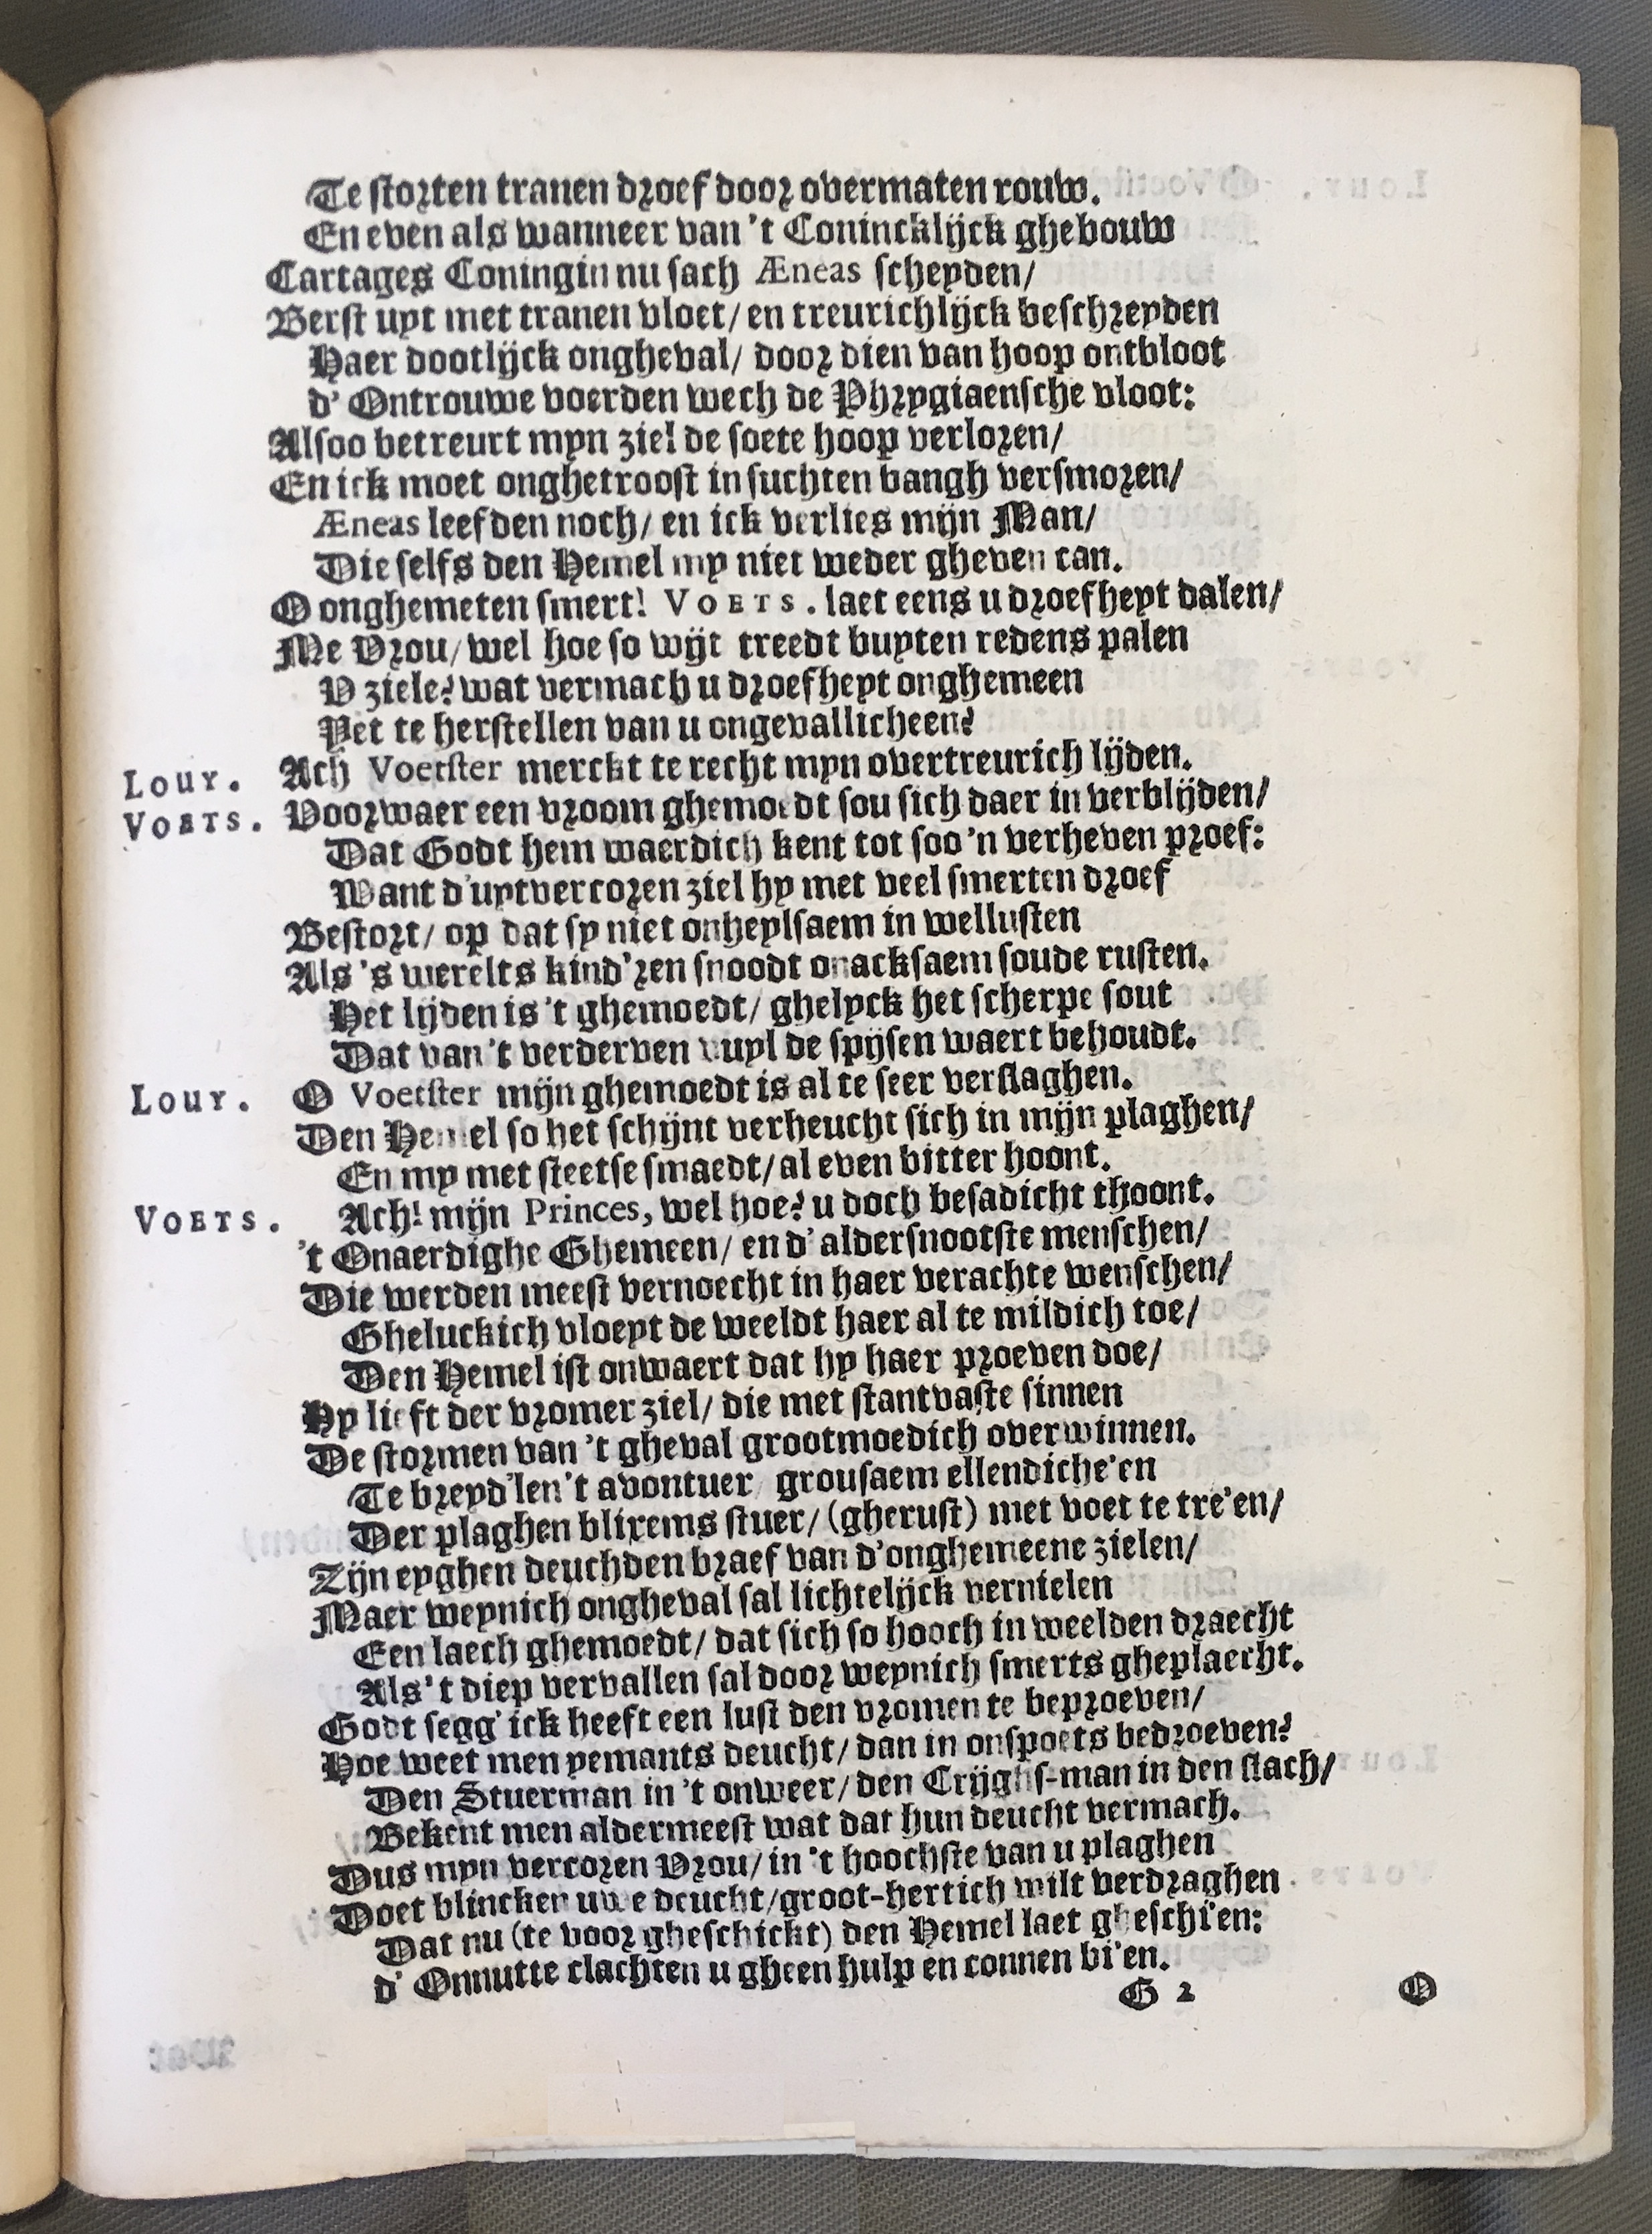 Te storten tranen droef door overmaten rouw.
En even als wanneer van 't Conincklijck ghebouw
Cartages Coningin nu sach Æneas scheyden/
Berst uyt met tranen vloet/ en treurichlijck beschreyden
Haer dootlijck ongheval/ door dien van hoop ontbloot
d' Ontrouwe voerden wech de Phrygiaensche vloot:
Alsoo betreurt myn ziel de soete hoop verloren/
En ick moet onghetroost in suchten bangh versmoren/
Æneas leefden noch/ en ick verlies mijn Man/
Die selfs den Hemel my niet weder gheven can.
O onghemeten smert! VOETS. laet eens u droefheyt dalen/
Me Vrou/ wel hoe so wijt treedt buyten redens palen
V ziele? wat vermach u droefheyt onghemeen
Yet te herstellen van u ongevallicheen?
LOUY. Ach Voetster merckt te recht myn overtreurich lijden.
VOETS. Voorwaer een vroom ghemoedt sou sich daer in verblijden/
Dat Godt hem waerdich kent tot soo 'n verheven proef:
Want d'uytvercoren ziel hy met veel smerten droef
Bestort/ op dat sy niet onheylsaem in wellusten
Als 's werelts kind'ren snoodt onacksaem soude rusten.
Het lijden is 't ghemoedt/ ghelyck het scherpe sout
Dat van 't verderven vuyl de spijsen waert behoudt.
LOUY. O Voetster mijn ghemoedt is al te seer verslaghen.
Den Hemel so het schijnt verheucht sich in mijn plaghen/
En my met steetse smaedt/ al even bitter hoont.
VOETS. Ach! mijn Princes, wel hoe? u doch besadicht thoont.
't Onaerdighe Ghemeen/ en d' aldersnootste menschen/
Die werden meest vernoecht in haer verachte wenschen/
Gheluckich vloeyt de weeldt haer al te mildich toe/
Den Hemel ist onwaert dat hy haer proeven doe/
Hy lieft der vromer ziel/ die met stantvaste sinnen
De stormen van 't gheval grootmoedich overwinnen.
Te breyd'len 't avontuer/ grousaem ellendiche'en
Der plaghen blixems stuer/ (gherust) met voet te tre'en/
Zijn eyghen deuchden braef van d'onghemeene zielen/
Maer weynich ongheval sal lichtelijck vernielen
Een laech ghemoedt/ dat sich so hooch in weelden draecht
Als 't diep vervallen sal door weynich smerts gheplaecht.
Godt segg' ick heeft een lust den vromen te beproeven/
Hoe weet men yemants deucht/ dan in onspoets bedroeven?
Den Stuerman in 't onweer/ den Crijghs-man in den slach/
Bekent men aldermeest wat dat hun deucht vermach.
Dus myn vercoren Vrou/ in 't hoochste van u plaghen
Doet blincken uwe deucht/ groot-hertich wilt verdraghen
Dat nu (te voor gheschickt) den Hemel laet gheschi'en:
d' Onnutte clachten u gheen hulp en connen bi'en.
G 2 O